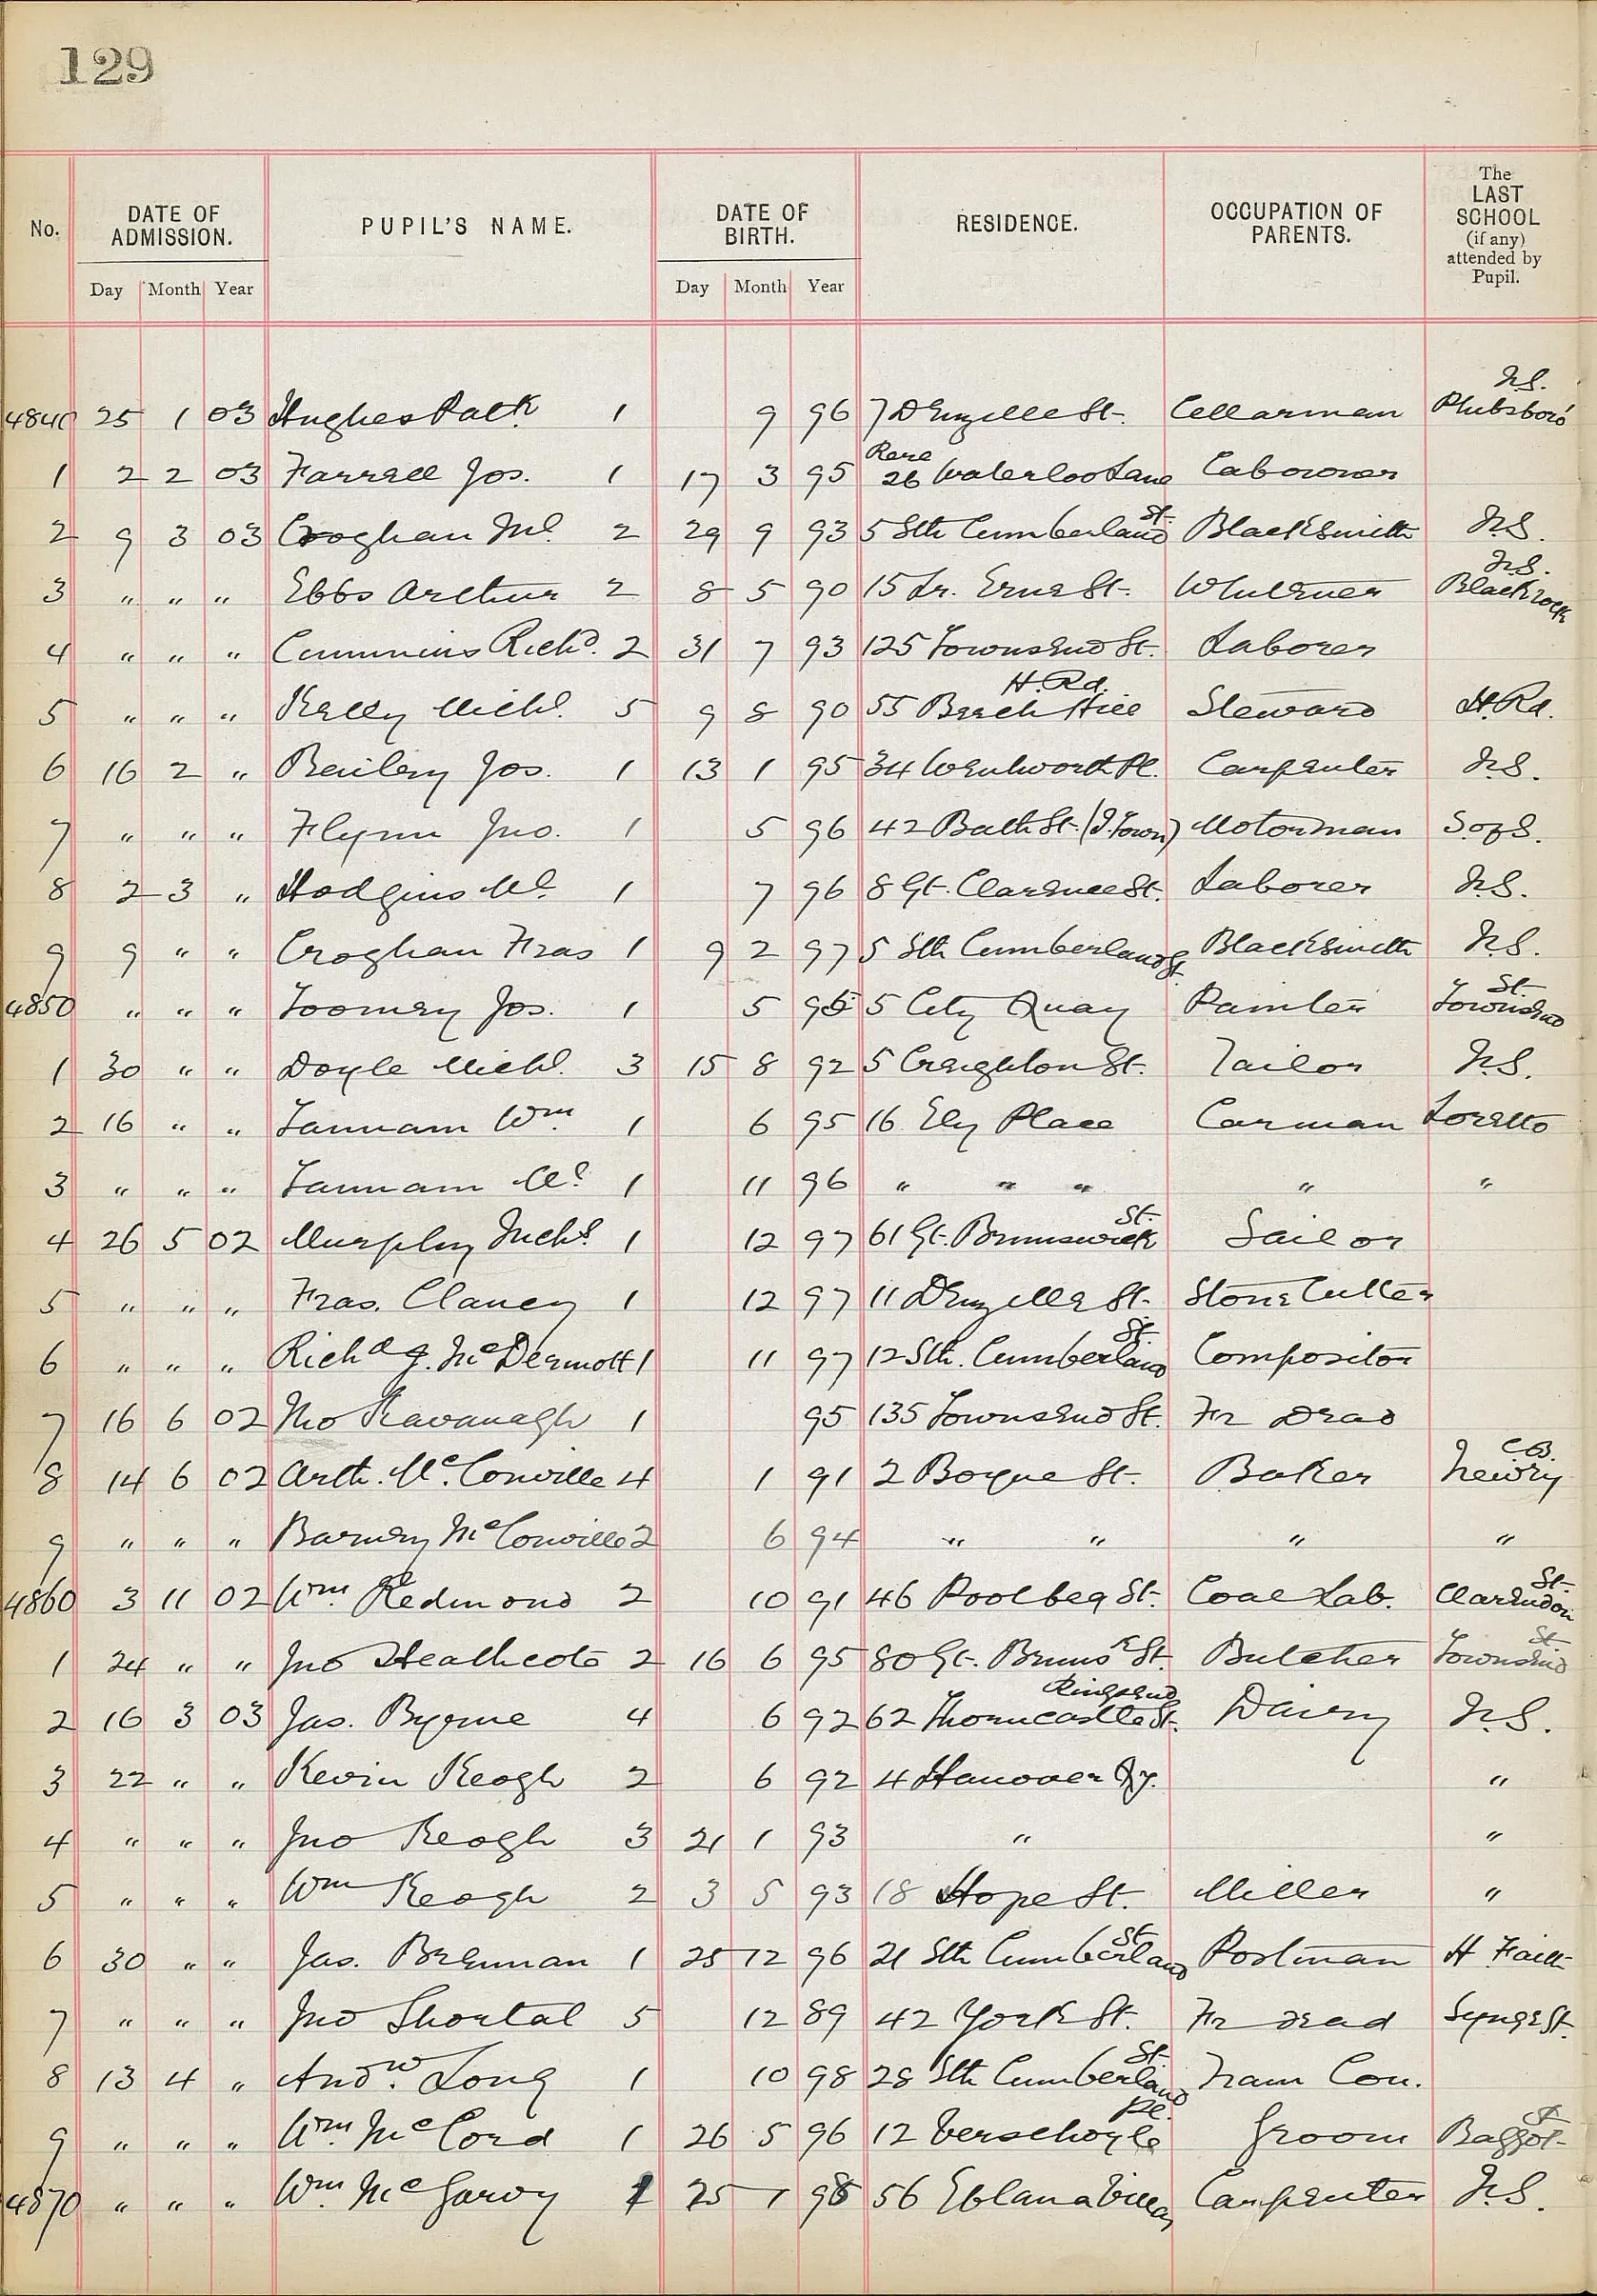 129
No. DATE OF ADMISSION. PUPIL'S NAME. DATE OF BIRTH. RESIDENCE. OCCUPATION OF PARENTS. The LAST SCHOOL (if any) attended by Pupil.
Day Month Year Day Month Year
4840 25 1 03 Hughes Patk 1 9 96 7 Denzille St. Cellarman N.S. Phibsboro'
1 2 2 03 Farrell Jos. 1 17 3 95 Rere 26 Waterloo Lane Labourer
2 9 3 03 Croghan Ml. 2 29 9 93 5 Sth Cumberland St. Blacksmith N.S.
3 " " " Ebbs Arthur 2 8 5 90 15 Lr. Erne St. N.S. Blackrock
4 " " " Cummins Richd. 2 31 7 93 125 Townsend St. Laborer
5 " " " Kelly Michl. 5 9 8 90 55 Beech Hill H.Rd. Steward H.Rd.
6 16 2 " Bailey Jos. 1 13 1 95 34 Wentworth Pl. Carpenter N.S.
7 " " " Flynn Jno. 1 5 96 42 Bath St. (I.Town) Motorman S. of S.
8 2 3 " Hodgins Ml. 1 7 96 8 Gt. Clarence St. Laborer N.S.
9 9 " " Croghan Fras 1 9 2 97 5 Sth Cumberland St. Blacksmith N.S.
4850 " " " Toomey Jos. 1 5 95 5 City Quay Painter Townsend St.
1 30 " " Doyle Michl. 3 15 8 92 5 Creighton St. Tailor N.S.
2 16 " " Tannam Wm. 1 6 95 16 Ely Place Carman Loretto
3 " " " Tannam Ml. 1 11 96 " " " " "
4 26 5 02 Murphy Michl. 1 12 97 61 Gt. Brunswick St. Sailor
5 " " " Fras. Clancy 1 12 97 11 Denzille St. Stone Cutter
6 " " " Richd J. McDermott 1 11 97 12 Sth. Cumberland St. Compositor
7 16 6 02 Tho Kavanagh 1 95 135 Townsend St. Fr Dead
8 14 6 02 Arth. McConville 4 1 91 2 Boyne St. Baker C.B. Newry
9 " " " Barney McConville 2 6 94 " " " "
4860 3 11 02 Wm. Redmond 2 10 91 46 Poolbeg St. Coal Lab. Clarendon St.
1 24 " " Jno Heathcote 2 16 6 95 80 Gt. Brunsk St. Butcher Townsend St
2 16 3 03 Jas. Byrne 4 6 92 62 Thorncastle St. Ringsend Dairy N.S.
3 22 " " Kevin Keogh 2 6 92 4 Hanover Qy. "
4 " " " Jno Keogh 3 21 1 93 " "
5 " " " Wm Keogh 2 3 5 93 18 Hope St. Miller "
6 30 " " Jas. Brennan 1 25 12 96 21 Sth Cumberland St Postman H Faith
7 " " " Jno Shortal 5 12 89 42 York St. Fr dead Synge St.
8 13 4 " Andw. Long 1 10 98 28 Sth Cumberland St. Tram Con.
9 " " " Wm. McCord 1 26 5 96 12 Verschoyle Pl. Groom Baggot St
4870 " " " Wm. McGarvy 1 25 1 98 56 Eblana Villas Carpenter N.S.